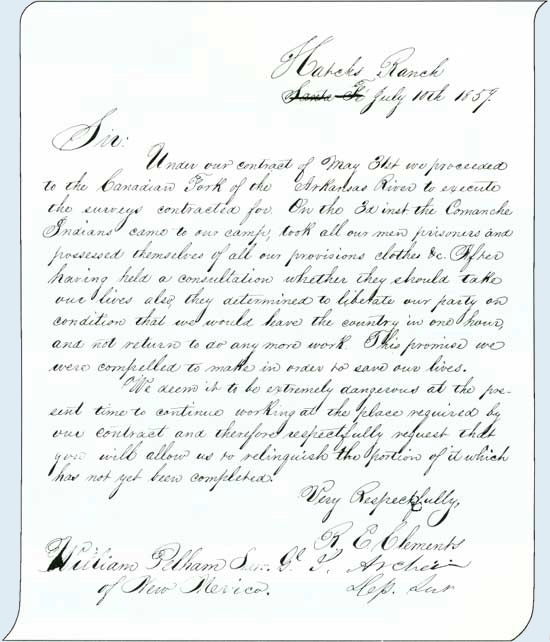 Hatch's Ranch
Santa Fé July 10th 1859.
Sir:
Under our contract of May 31st we proceeded
to the Canadian Fork of the Arkansas River to execute
the surveys contracted for. On the 3d inst the Comanche
Indians came to our camp, took all our men prisoners and
possessed themselves of all our provisions clothes &c. After
having held a consultation whether they should take
our lives also, they determined to liberate our party on
condition that we would leave the country in one hour,
and not return to do any more work. This promise we
were compelled to make in order to save our lives.
We deem it to be extremely dangerous at the pre-
sent time to continue working at the place required by
our contract and therefore respectfully request that
you will allow us to relinquish the portion of it which
has not yet been completed.
Very Respectfully,
R E Clements
William Pelham Sur. Gl. J. Archer
of New Mexico. Dep. Sur